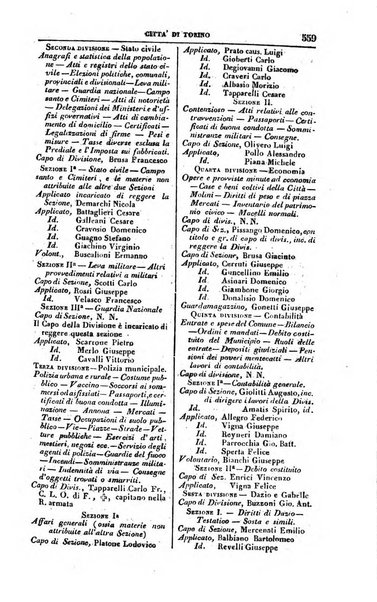 CITTA' DI TORINO
559
SECONDA DIVISIONE — Stato civile
Anagrafi e statistica della popolazio-
ne — Atti e registri dello stato civi-
le — Elezioni politiche, comunali,
provinciali e divisionali — Leva mili-
tare — Guardia nazionale — Campo-
santo e Cimiteri — Atti di notorietà
— Delegazioni dei Ministeri e d'uf-
fizi governativi — Atti di cambia-
di domicilio — Certificati —
Legalizzazioni di firme — Pesi e
misure — Tasse diverse esclusa la
Prediale e l'Imposta sui fabbricati.
Capo di Divisione, Brusa Francesco
SEZIONE Iª — Stato civile — Campo-
santo e Cimiteri, e le materie non
attribuite alle altre due Sezioni
Applicato incaricato di reggere la
Sezione, Demarchi Nicola
Applicato, Battaglieri Cesare
Id. Galleani Cesare
Id. Cravosio Domenico
Id. Guagno Stefano
Id. Giachino Virginio
Volont., Buscaglioni Ermanno
SEZIONE IIª — Leva militare — Altri
provvedimenti relativi a militari
Capo di Sezione, Scotti Carlo
Applicato, Rossi Giuseppe
Id. Velasco Francesco
SEZIONE IIIª — Guardia Nazionale
Capo di Sezione, N. N.
Il Capo della Divisione è incaricato di
reggere questa sezione
Applicato, Scarrone Pietro
Id. Merlo Giuseppe
Id. Cavalli Vittorio
TERZA DIVISIONE — Polizia municipale.
Polizia urbana e rurale — Costume pub-
blico — Vaccino — Soccorsi ai som-
mersi ed asfissiati — Passaporti, e cer-
tificati di buona condotta — Illumina-
zione — Annona — Mercati —
Tasse — Occupazioni di suolo pub-
blico — Vie — Piazze — Strade — Vet-
ture pubbliche — Esercizi d'arti,
mestieri, negozi ecc. — Servizio degli
agenti municipali — Guardie del fuoco
— Incendi — Somministranze milita-
ri — Indennità di via — Consegne
d'oggetti trovati o smarriti
Capo di Divis., Tapparelli Carlo Fr.,
C. L. O. di F., capitano nella
R. armata
SEZIONE Iª
Affari generali (ossia materie non
attribuite all'altra Sezione)
Capo di Sezione, Platone Lodovico
Applicato, Prato caus. Luigi
Id. Gioberti Carlo
Id. Degiovanni Giacomo
Id. Craveri Carlo
Id. Albasio Morizio
Id. Tapparelli Cesare
SEZIONE II.
Contenzioso — Atti relativi alle con-
travvenzioni — Passaporti — Certifi-
cati di buona condotta — Sommini-
stranze militari
Capo di Sezione, Olivero Luigi
Applicato, Pollo Alessandro
Id. Piana Michele
QUARTA DIVISIONE — Economia
Opere e provviste minute ad economia
— Case e beni coltivi della Città —
Molini — Dritti di peso in piazza
Mercati — Inventario del patrimo-
nio civico — Macelli normali.
Capo di divis., N. N.
Capo di Sez., Pissango Domenico, con
titolo e gr. di capo di divis., inc. di
reggere la divisione
Capo di Sezione, Brusa Giacinto
Applicato, Cerruti Giuseppe
Id. Guncellino Emilio
Id. Asinari Domenico
Id. Giambone Giorgio
Id. Donalisio Domenico
Guardamagazzino, Gonelli Giuseppe
QUINTA DIVISIONE — Contabilità
Entrate e spese del Comune — Bilancio
— Ordini e mandati — Debito costituito
del Municipio — Ruoli delle
entrate — Depositi giudiziali — Pen-
sioni e poveri mercati — Altri
lavori di contabilità.
Capo di divisione, N. N.
SEZIONE Iª — Contabilità generale.
Capo di Sezione, Giolitti Augusto, inc.
di dirigere i lavori della Divis.
Id. Amatis Spirito, id.
Applicato, Allegro Federico
Id. Vigna Giuseppe
Id. Reyneri Damiano
Id. Parrocchia Gio. Batt.
Id. Sperta Felice
Volontario, Bianchi Giuseppe
SEZIONE IIª — Debito costituito
Capo di Sez. Enrici Vincenzo
Applicato, Vigna Felice
SESTA DIVISIONE — Dazio e Gabelle
Capo di Divisione, Buzzoni Gio. Ant.
SEZIONE I. — Diritti di Dazio —
Testatico — Sosta e simili.
Capo di Sezione, Mercenati Emilio
Applicato, Balbiano Bartolomeo
Id. Revelli Giuseppe